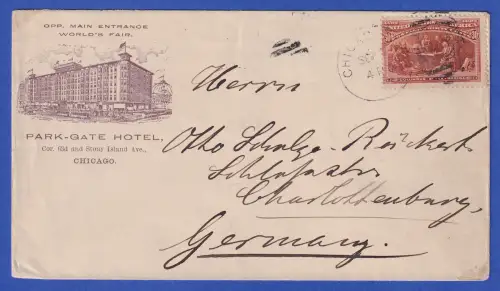 OPP. MAIN ENTRANCE
WORLD'S FAIR.
PARK-GATE HOTEL,
Cor. 63d and Stony Island Ave.,
CHICAGO.
CHICAGO
Herrn
Otto Schulze-Rückert
Schloßstr.
Charlottenburg,
Germany.